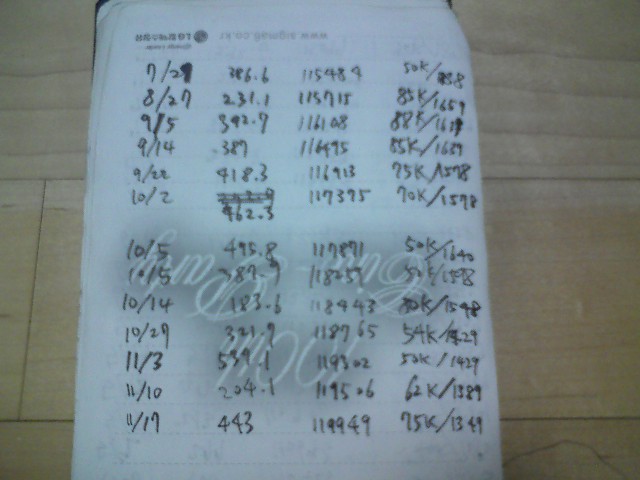 www.sigmad.co.kr
7/29 386.6 115484 50K/
8/27 231.1 115715 85K/1659
9/5 392.9 116108 88K/
9/14 387 116495 85K/1639
9/22 418.3 116913 75K/1578
10/2 117375 70K/1578
462.3
10/5 495.8 117871 50K/1640
387.9 118259
10/14 183.6 118443 80K/1548
10/29 321.9 118765 54K/1429
11/3 119302 50K/1429
11/10 204.1 119506 62K/1389
11/17 443 119949 75K/1349